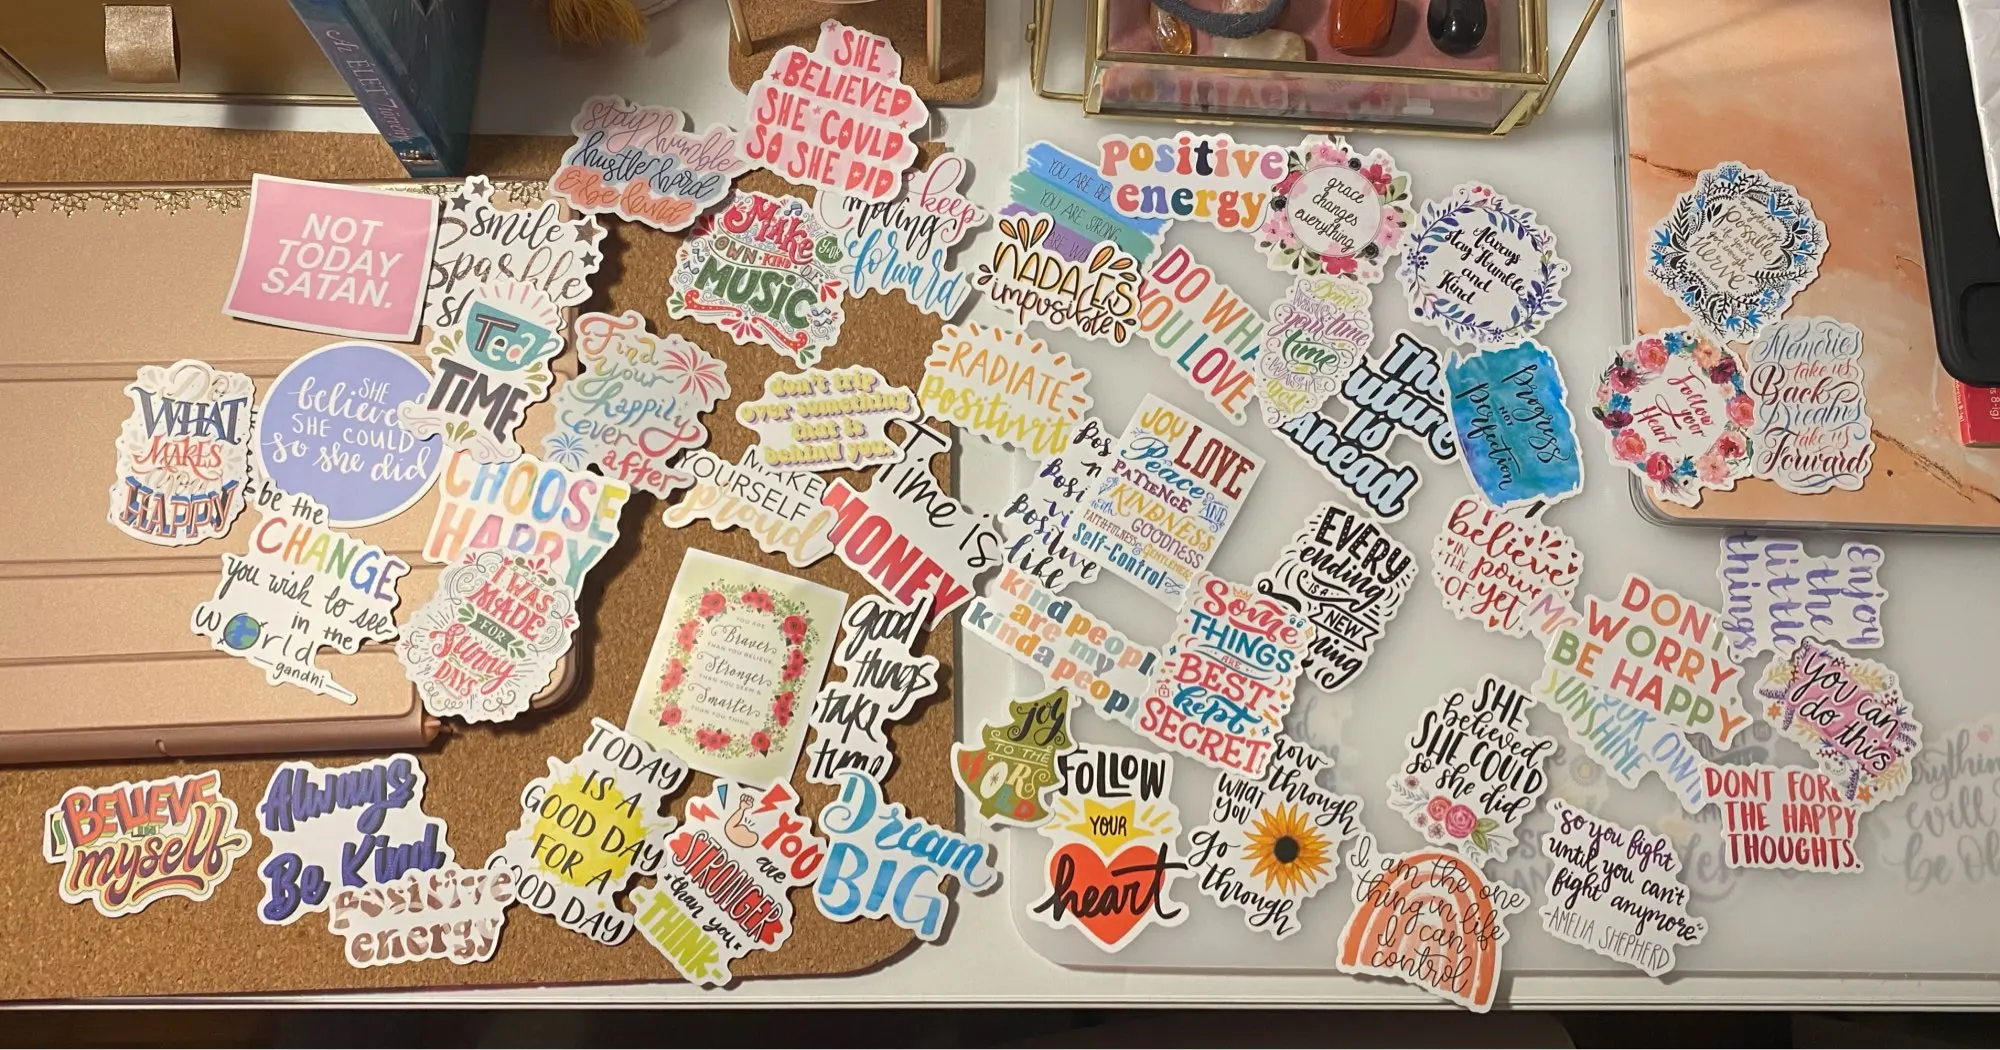 AZ ÉLET
SHE
BELIEVED
SHE COULD
SO SHE DID
stay humble
hustle hard
& be kind
NOT
TODAY
SATAN.
smile
sparkle
Make
YOUR
OWN·KIND·OF
MUSIC
keep
moving
forward
YOU ARE
YOU ARE STRONG
positive
energy
grace
changes
everything
Always
Stay Humble
and
Kind
NADA ES
imposible
DO WHA
YOU LOVE
your time
time
Tea
TIME
Find
your
happily
ever
after
don't trip
over something
that is
behind you.
RADIATE
positivit
The
uture
Is
Ahead
Progress
NOT
Perfection
possible
nerve
Follow
your
Heart
Memories
take us
Back
Dreams
take us
Forward
Do
WHAT
MAKES
you
HAPPY
SHE
believe
SHE COULD
so she did
CHOOSE
HAPPY
be the
CHANGE
you wish to see
in the
world
-gandhi-
I WAS
MADE
FOR
Sunny
DAYS
MAKE
YOURSELF
proud
Time is
MONEY
positive
like
JOY LOVE
Peace
PATIENCE AND
KINDNESS
with GOODNESS
FAITHFULNESS & GENTLENESS
Self-Control
kind peopl
are my
kinda peopl
Some
THINGS
ARE
BEST
kept
SECRET
EVERY
ending
IS A
NEW
believe
IN THE power
OF yet
Enjoy
the
little
things
DON'T
WORRY
BE HAPPY
OUR OWN
SUNSHINE
You can
do this
YOU ARE
Braver
THAN YOU BELIEVE,
Stronger
THAN YOU SEEM &
Smarter
THAN YOU THINK
good
things
take
time
joy
TO THE
WORLD
FOLLOW
YOUR
heart
WHAT
you
Go
through
Grow
through
SHE
believed
SHE COULD
so she did
DONT FORG
THE HAPPY
THOUGHTS.
BELIEVE
myself
Always
Be Kind
positive
energy
TODAY
IS A
GOOD DAY
FOR A
GOOD DAY
YOU
are
STRONGER
than you
-THINK-
Dream
BIG
I am the one
thing in life
I can
control
"so you fight
until you can't
fight anymore"
-AMELIA SHEPHERD
will